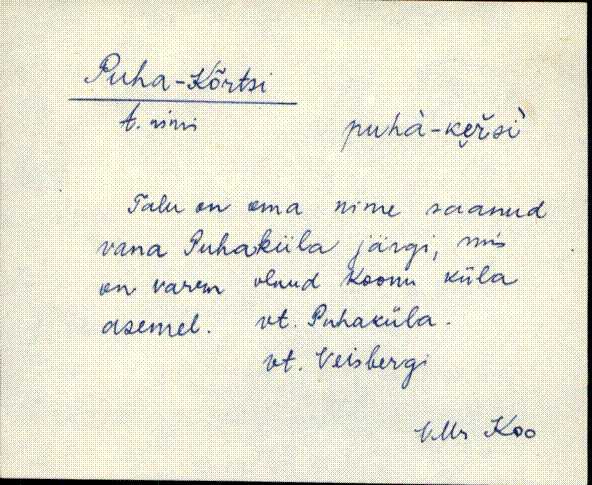 Puha-Kõrtsi
t. nimi
puhà-kẹřsì
Talu on oma nime saanud
vana Puhaküla järgi, mis
on varem olnud Koonu küla
asemel. vt. Puhaküla.
vt. Veisbergi
VMr Koo